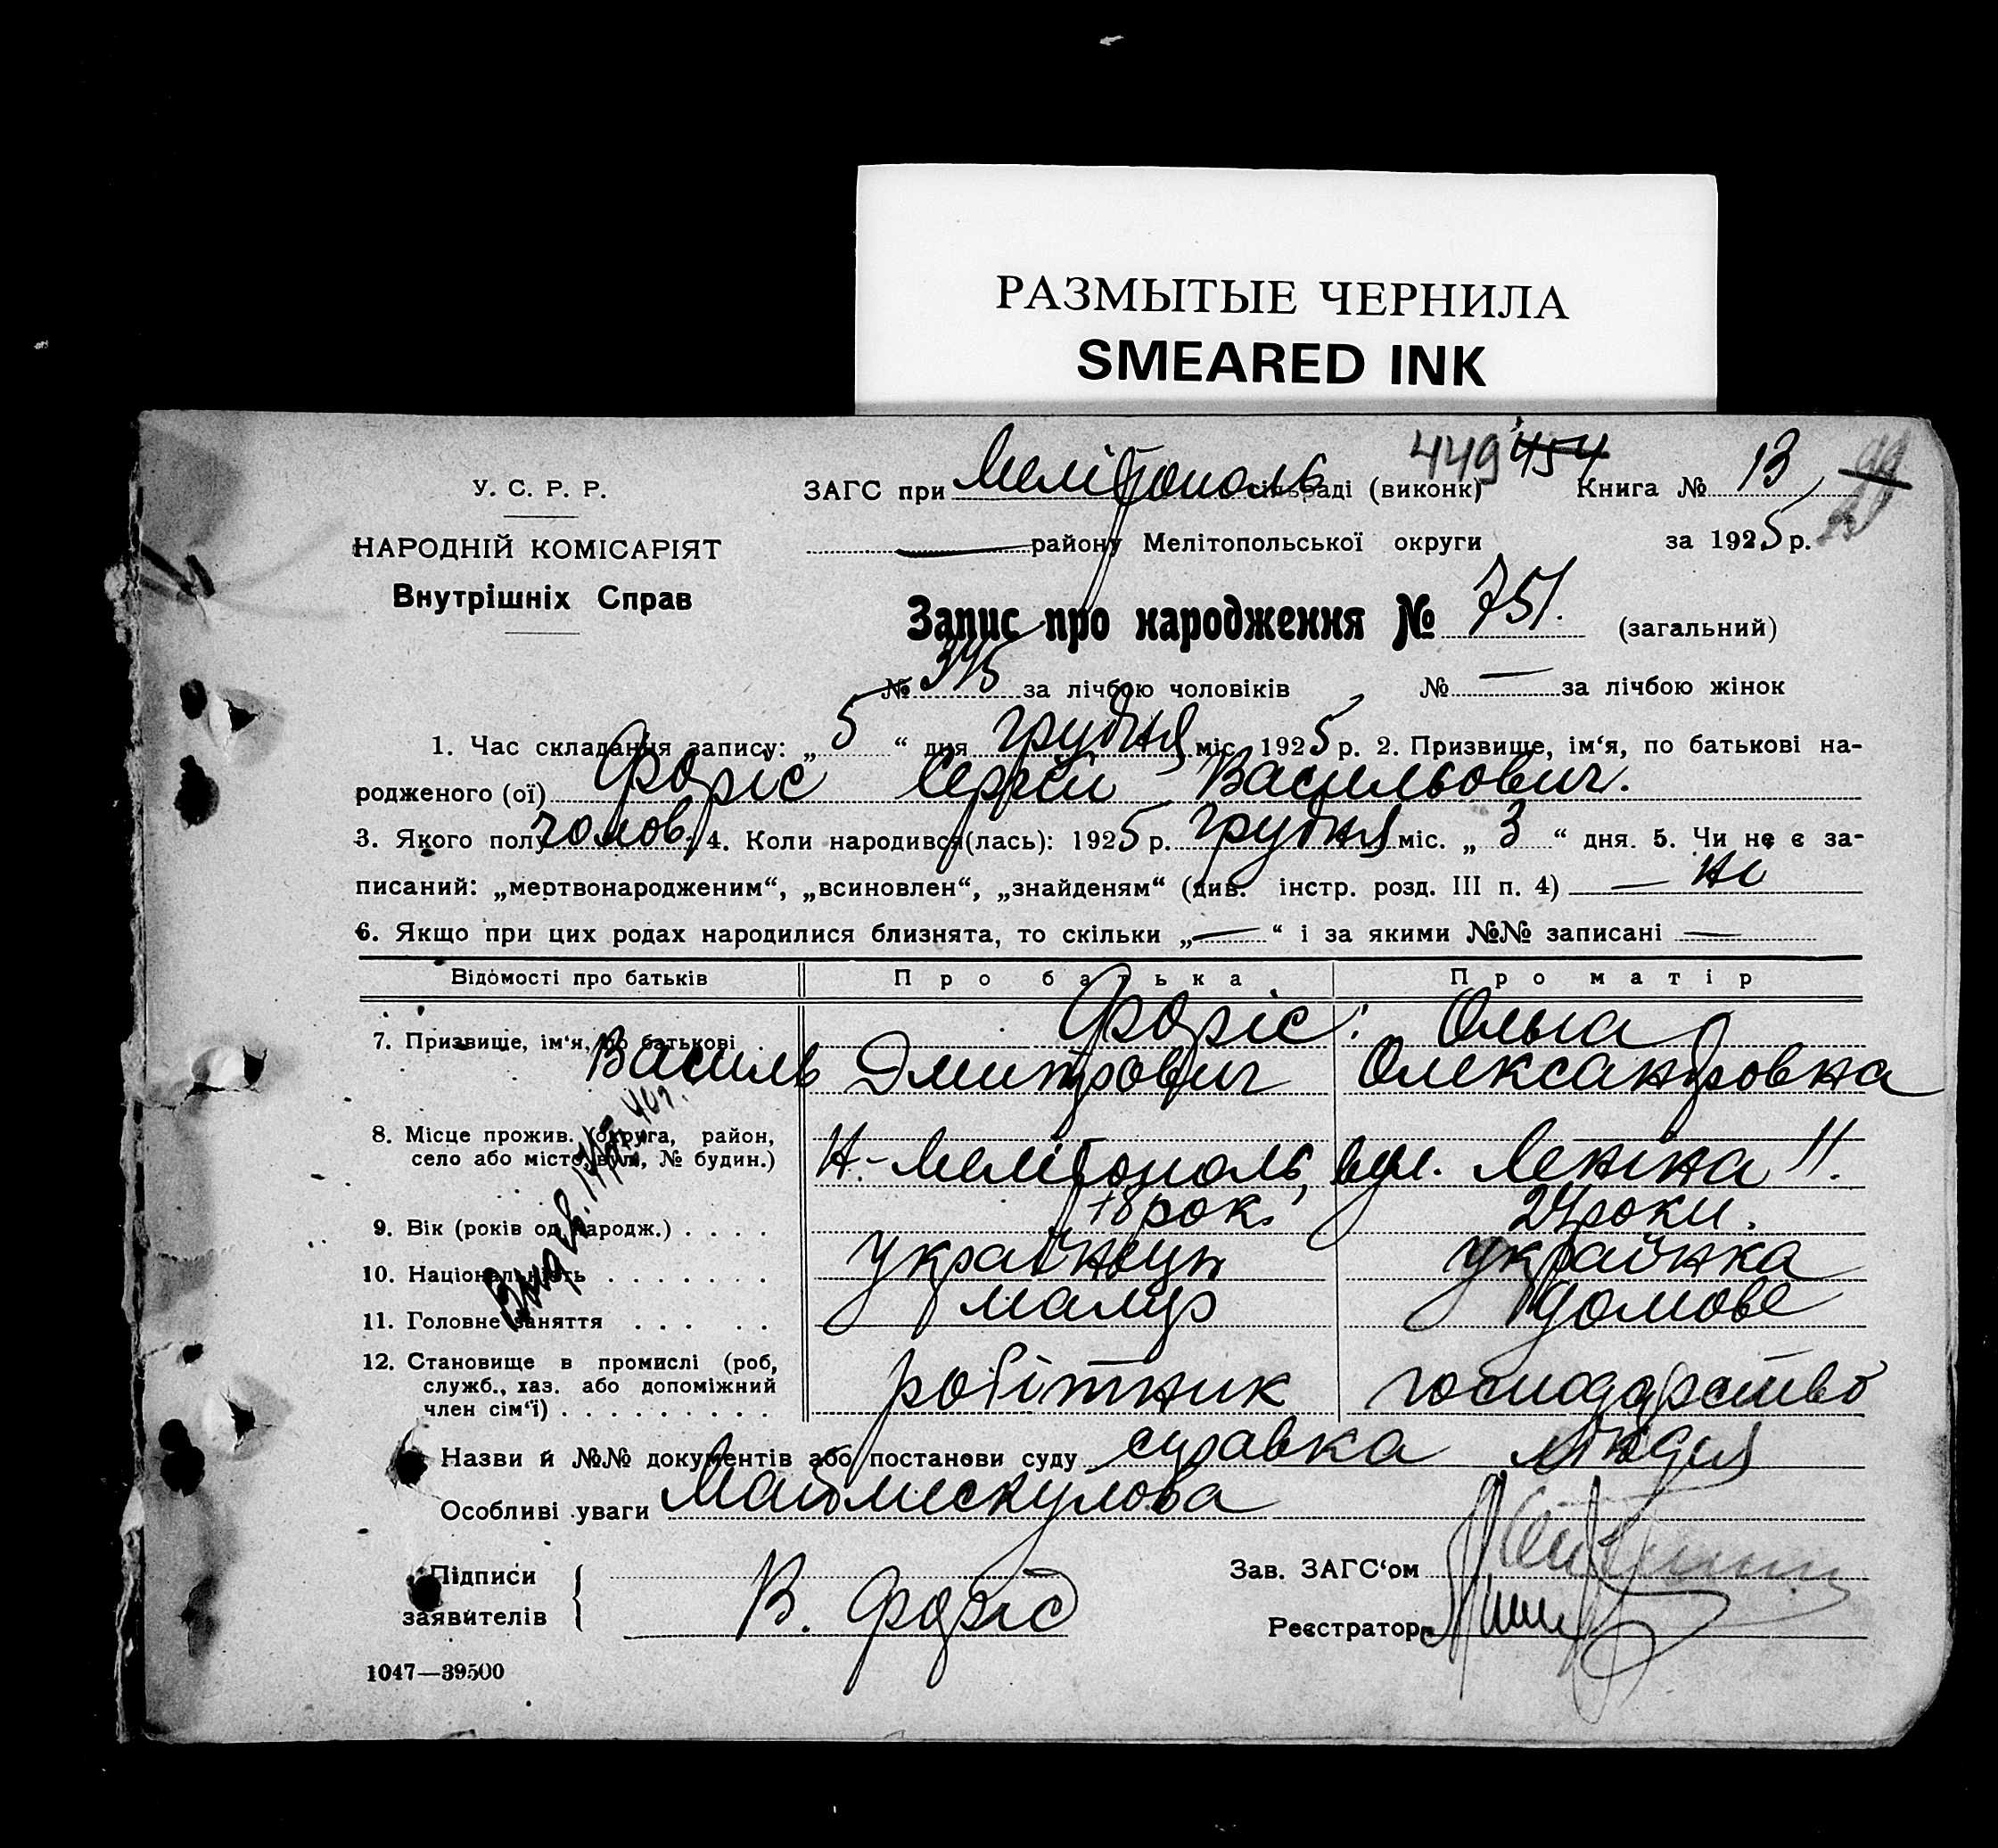 РАЗМЫТЫЕ ЧЕРНИЛА
SMEARED INK
У. С. Р. Р.
НАРОДНІЙ КОМІСАРІЯТ
Внутрішніх Справ
449 454
ЗАГС при Мелітополь сільраді (виконк) Книга № 13
району Мелітопольської округи за 1925 р.
Запис про народження № 751. (загальний)
№ 375 за лічбою чоловіків № — за лічбою жінок
1. Час складання запису: „5“ дня грудня міс. 1925 р. 2. Призвище, ім‘я, по батькові на-
родженого (ої) Форіс Сергій Васильович.
3. Якого полу чолов. 4. Коли народився(лась): 1925 р. грудня міс. „3“ дня. 5. Чи не є за-
писаний: „мертвонародженим“, „всиновлен“, „знайденям“ (див. інстр. розд. III п. 4) — ні
6. Якщо при цих родах народилися близнята, то скільки „—“ і за якими №№ записані —
Відомості про батьків Про батька Про матір
7. Призвище, ім‘я, по батькові . Форіс: Ольга
Василь Дмитрович Олександровна
8. Місце прожив. (округа, район,
село або місто, вул., № будин.) Н.-Мелітополь, вул. Леніна 11.
9. Вік (років од народж.) . . . . 18 рок. 24 роки.
10. Національність . . . . . . . українець українка
11. Головне заняття . . . . . маляр домове
12. Становище в промислі (роб,
служб., хаз. або допоміжний
член сім‘ї) . . . . . . . . . робітник господарство
Назви й №№ документів або постанови суду справка
Особливі уваги
Підписи
заявителів
В. Форіс
Зав. ЗАГС‘ом
Реєстратор
1047—39500